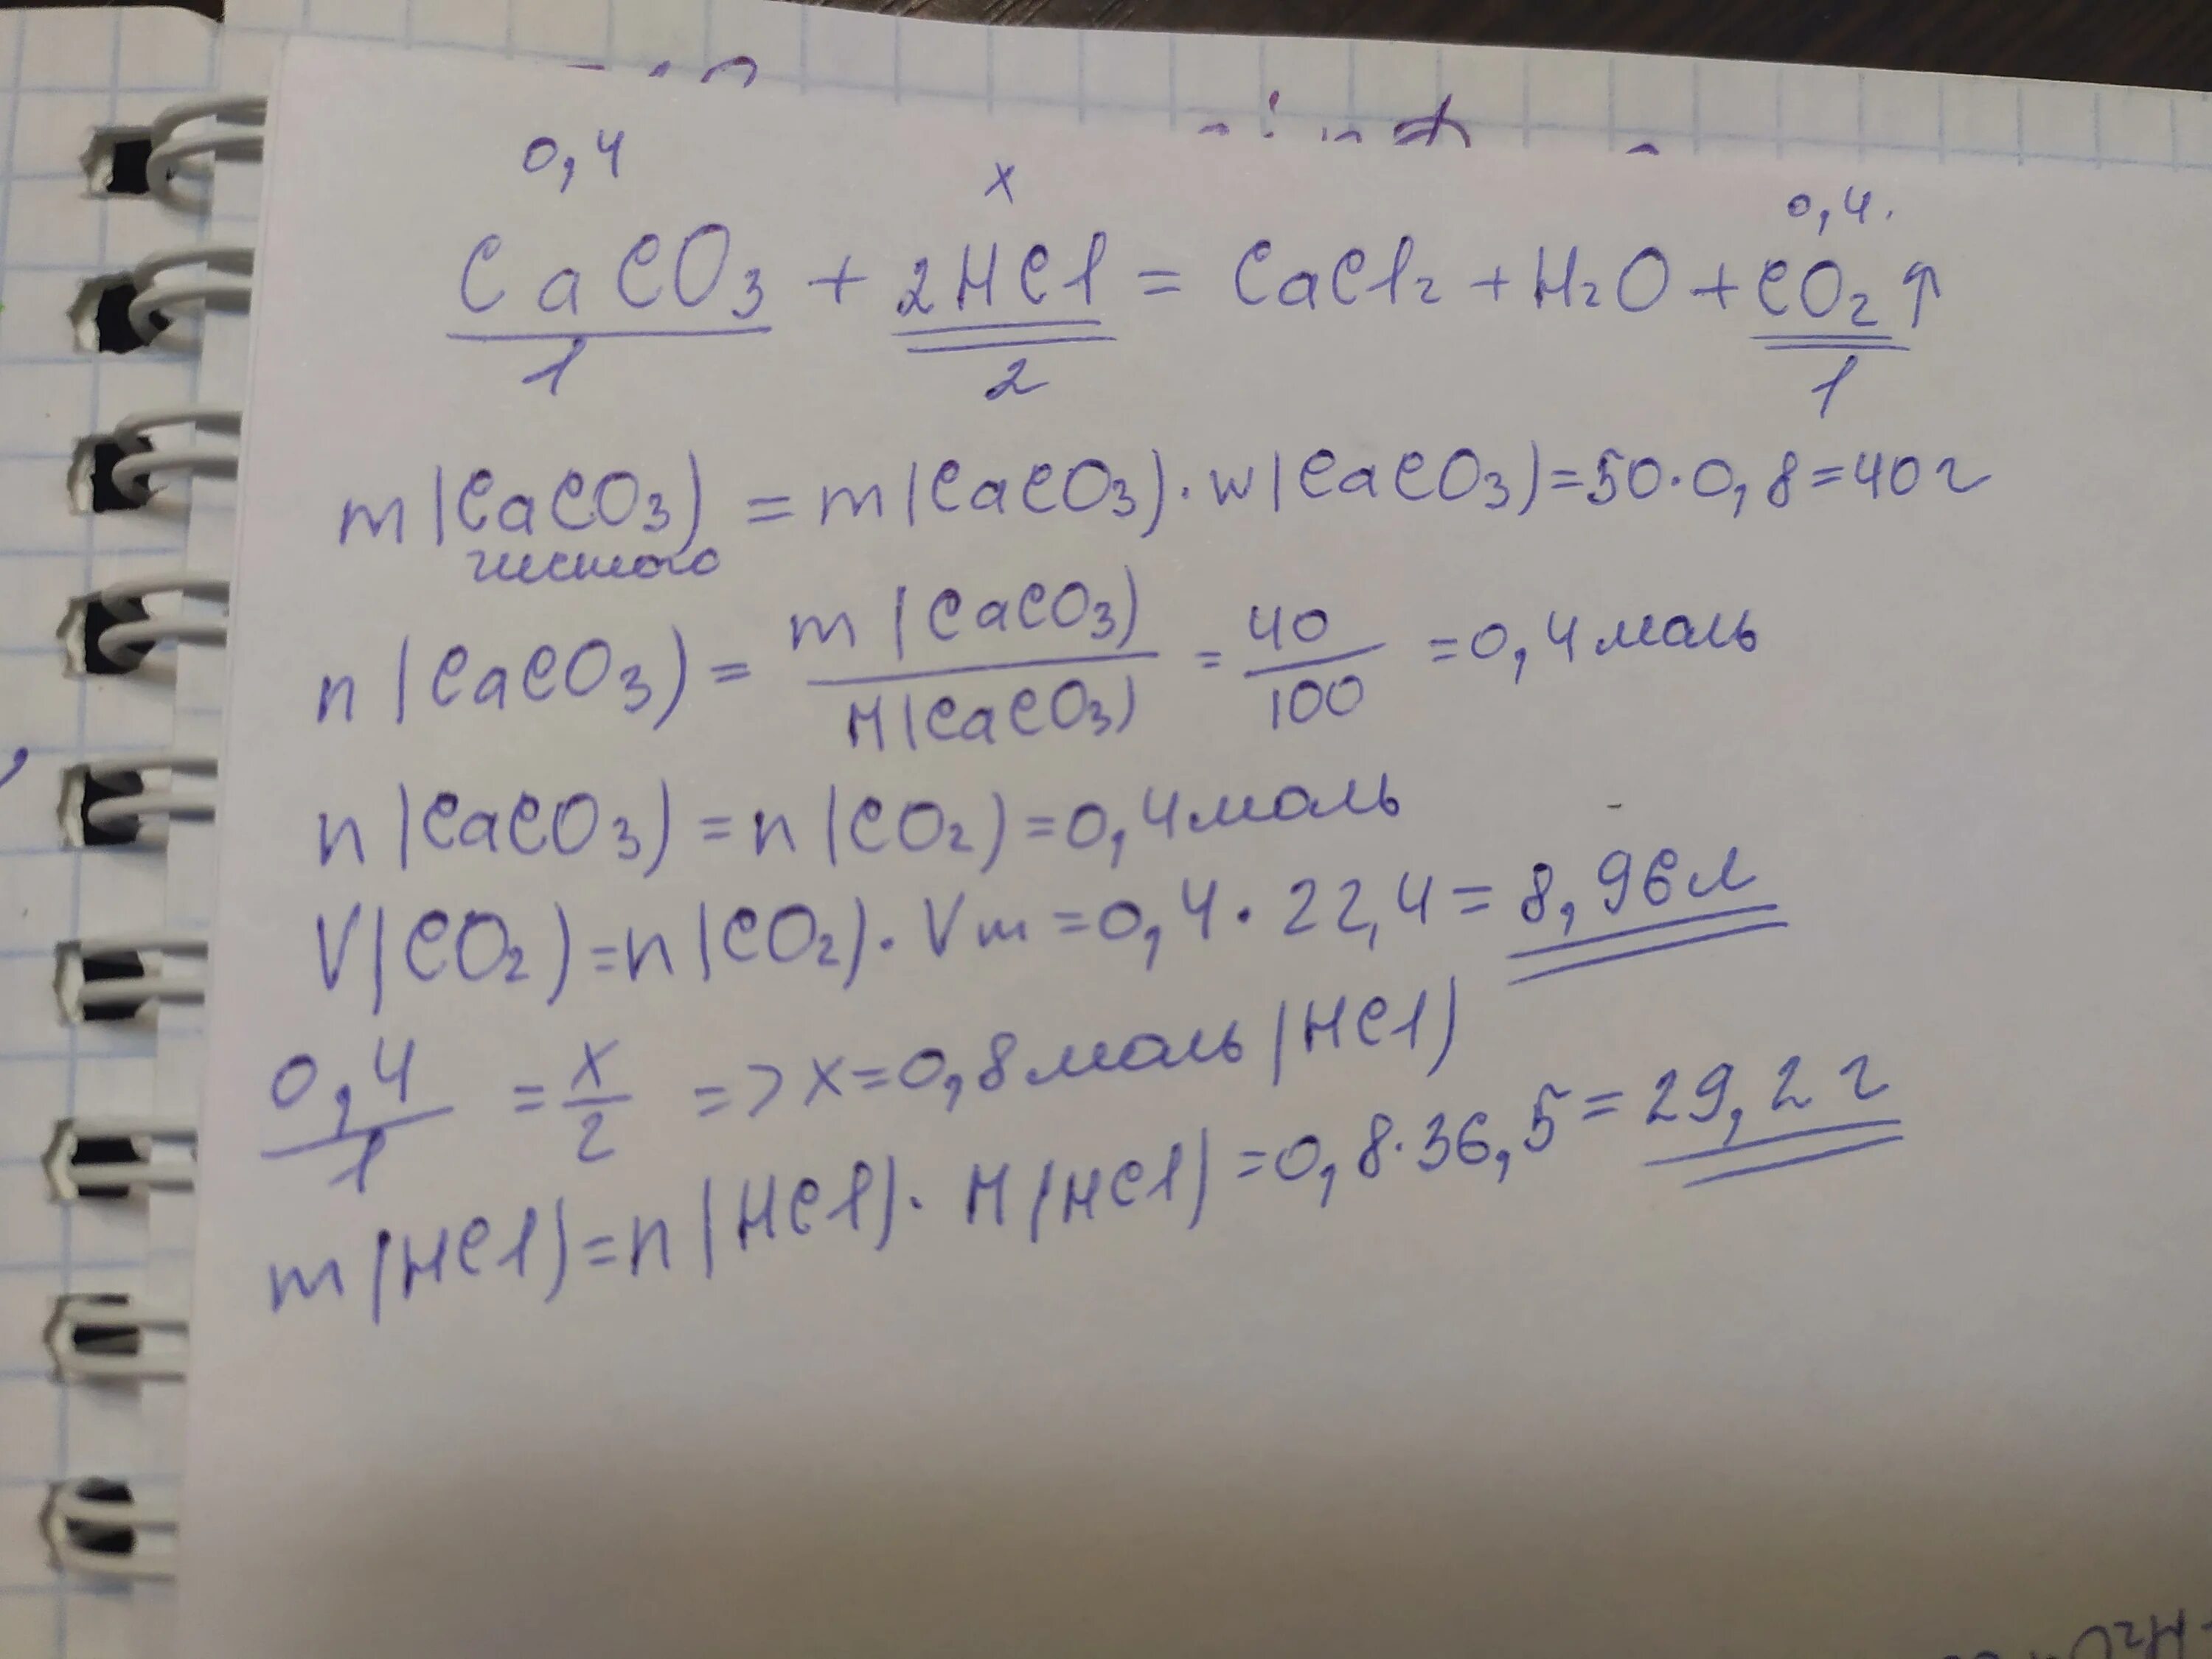 0,4 x 0,4.
CaCO₃ + 2HCl = CaCl₂ + H₂O + CO₂ ↑
1 2 1
m(CaCO₃) = m(CaCO₃) · w(CaCO₃) = 50 · 0,8 = 40 г
чистого
n(CaCO₃) = m(CaCO₃) / M(CaCO₃) = 40 / 100 = 0,4 моль
n(CaCO₃) = n(CO₂) = 0,4 моль
V(CO₂) = n(CO₂) · Vm = 0,4 · 22,4 = 8,96 л
0,4 / 1 = x / 2 => x = 0,8 моль (HCl)
m(HCl) = n(HCl) · M(HCl) = 0,8 · 36,5 = 29,2 г